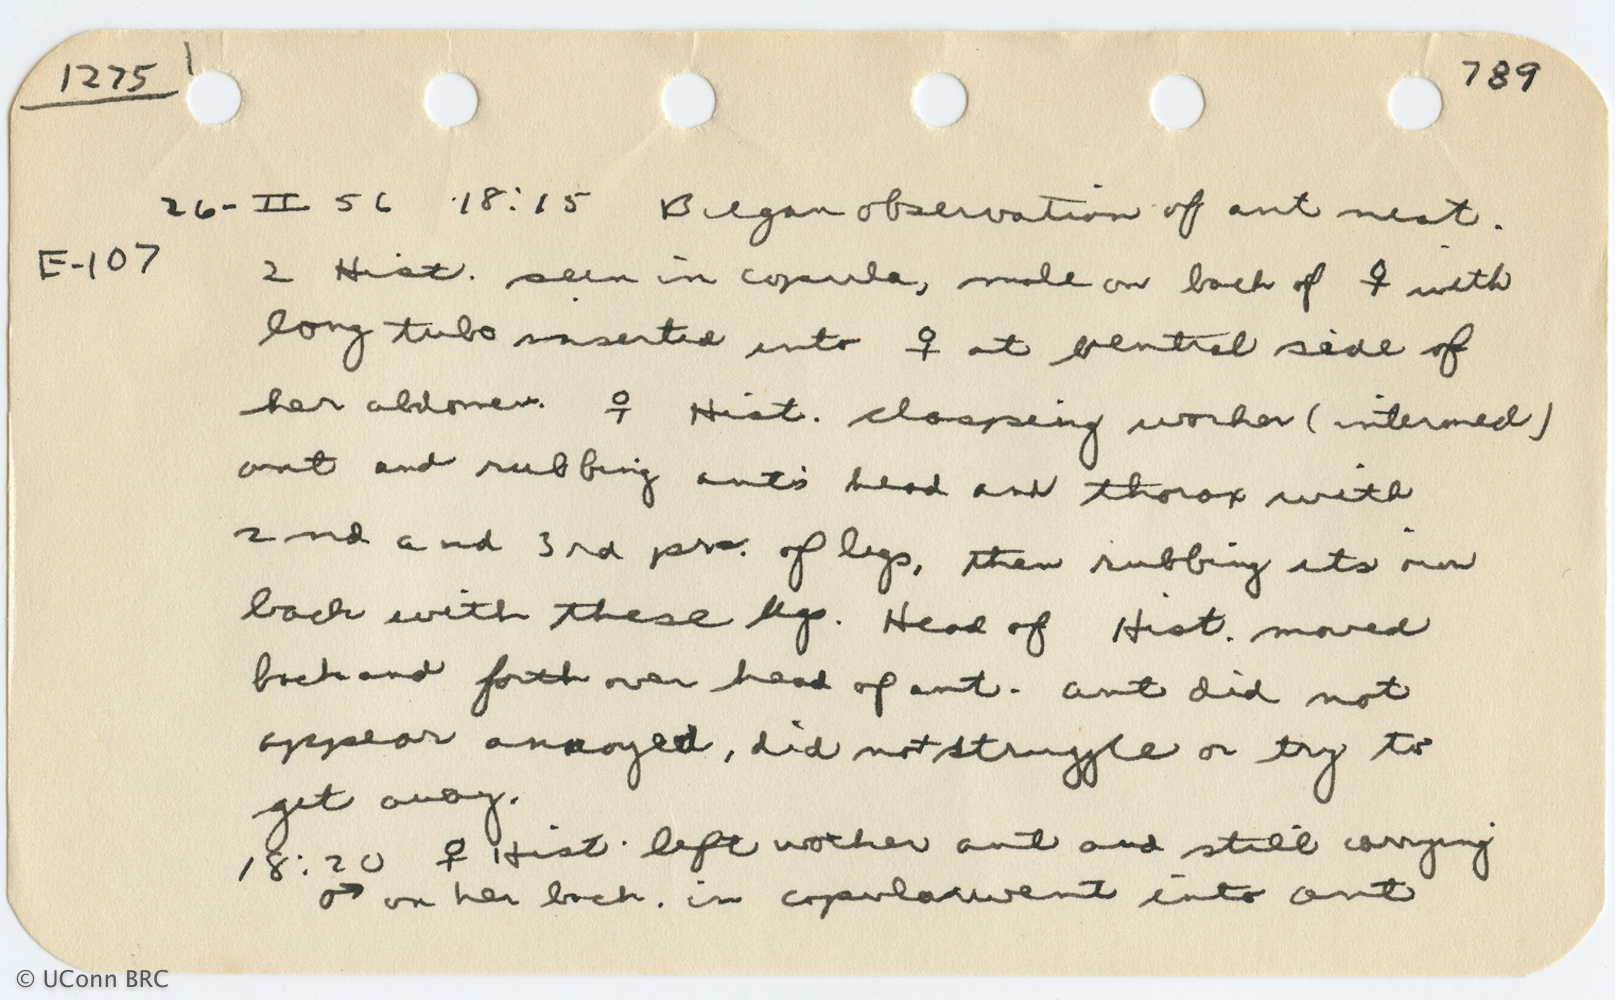 1275
789
26-II 56 18:15 Began observation of ant nest.
E-107
2 Hist. seen in copula, male on back of ♀ with
long tube inserted into ♀ at ventral side of
her abdomen. ♀ Hist. clasping worker (intermed)
ant and rubbing ant's head and thorax with
2nd and 3rd prs. of legs, then rubbing its own
back with these legs. Head of Hist. moved
back and forth over head of ant. Ant did not
appear annoyed, did not struggle or try to
get away.
18:20 ♀ Hist. left worker ant and still carrying
♂ on her back. in copula went into ant
© UConn BRC